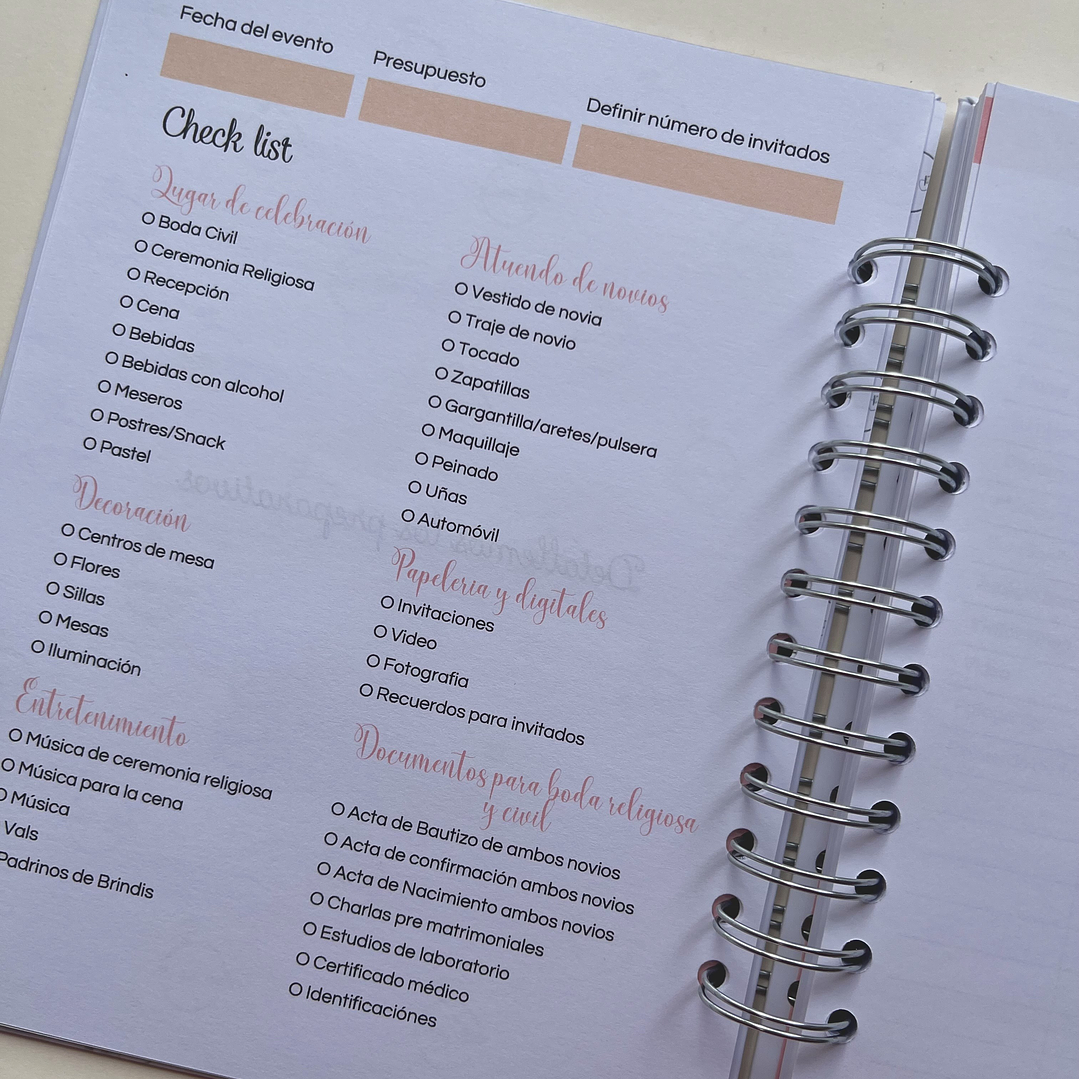 Fecha del evento
Presupuesto
Definir número de invitados
Check list
Lugar de celebración
O Boda Civil
O Ceremonia Religiosa
O Recepción
O Cena
O Bebidas
O Bebidas con alcohol
O Meseros
O Postres/Snack
O Pastel
Decoración
O Centros de mesa
O Flores
O Sillas
O Mesas
O Iluminación
Entretenimiento
O Música de ceremonia religiosa
O Música para la cena
O Música
Vals
Padrinos de Brindis
Atuendo de novios
O Vestido de novia
O Traje de novio
O Tocado
O Zapatillas
O Gargantilla/aretes/pulsera
O Maquillaje
O Peinado
O Uñas
O Automóvil
Papeleria y digitales
O Invitaciones
O Video
O Fotografia
O Recuerdos para invitados
Documentos para boda religiosa
y civil
O Acta de Bautizo de ambos novios
O Acta de confirmación ambos novios
O Acta de Nacimiento ambos novios
O Charlas pre matrimoniales
O Estudios de laboratorio
O Certificado médico
O Identificaciónes
Detallemos los preparativos